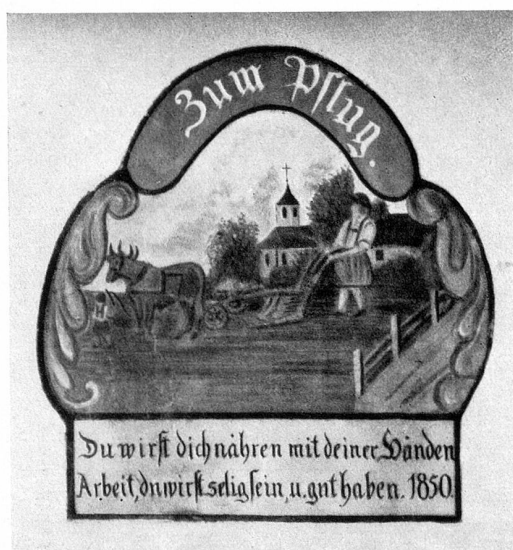 Zum Pflug.
Du wirst dich nähren mit deiner Händen
Arbeit, du wirst selig sein, u. gut haben. 1850.